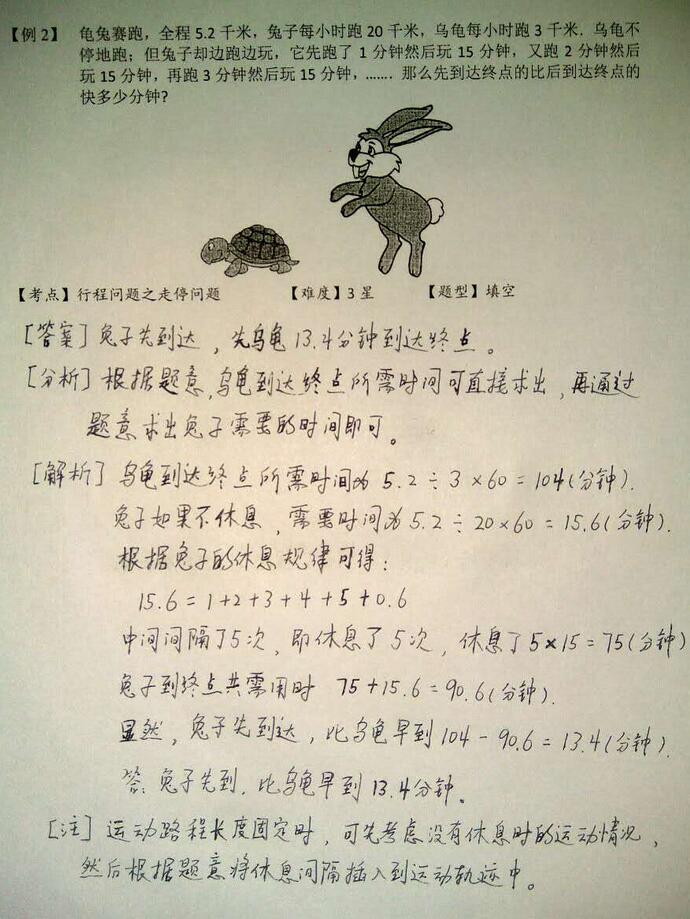 【例 2】 龟兔赛跑，全程 5.2 千米，兔子每小时跑 20 千米，乌龟每小时跑 3 千米．乌龟不
停地跑；但兔子却边跑边玩，它先跑了 1 分钟然后玩 15 分钟，又跑 2 分钟然后
玩 15 分钟，再跑 3 分钟然后玩 15 分钟，……．那么先到达终点的比后到达终点的
快多少分钟？
【考点】行程问题之走停问题 【难度】3 星 【题型】填空
[答案] 兔子先到达，先乌龟 13.4分钟到达终点。
[分析] 根据题意，乌龟到达终点所需时间可直接求出，再通过
题意求出兔子需要的时间即可。
[解析] 乌龟到达终点所需时间为 5.2÷3×60=104(分钟).
兔子如果不休息，需要时间为 5.2÷20×60=15.6(分钟).
根据兔子的休息规律可得：
15.6=1+2+3+4+5+0.6
中间间隔了5次，即休息了5次，休息了5×15=75(分钟)
兔子到终点共需用时 75+15.6=90.6(分钟).
显然，兔子先到达，比乌龟早到104-90.6=13.4(分钟).
答：兔子先到，比乌龟早到13.4分钟。
[注] 运动路程长度固定时，可先考虑没有休息时的运动情况，
然后根据题意将休息间隔插入到运动轨迹中。